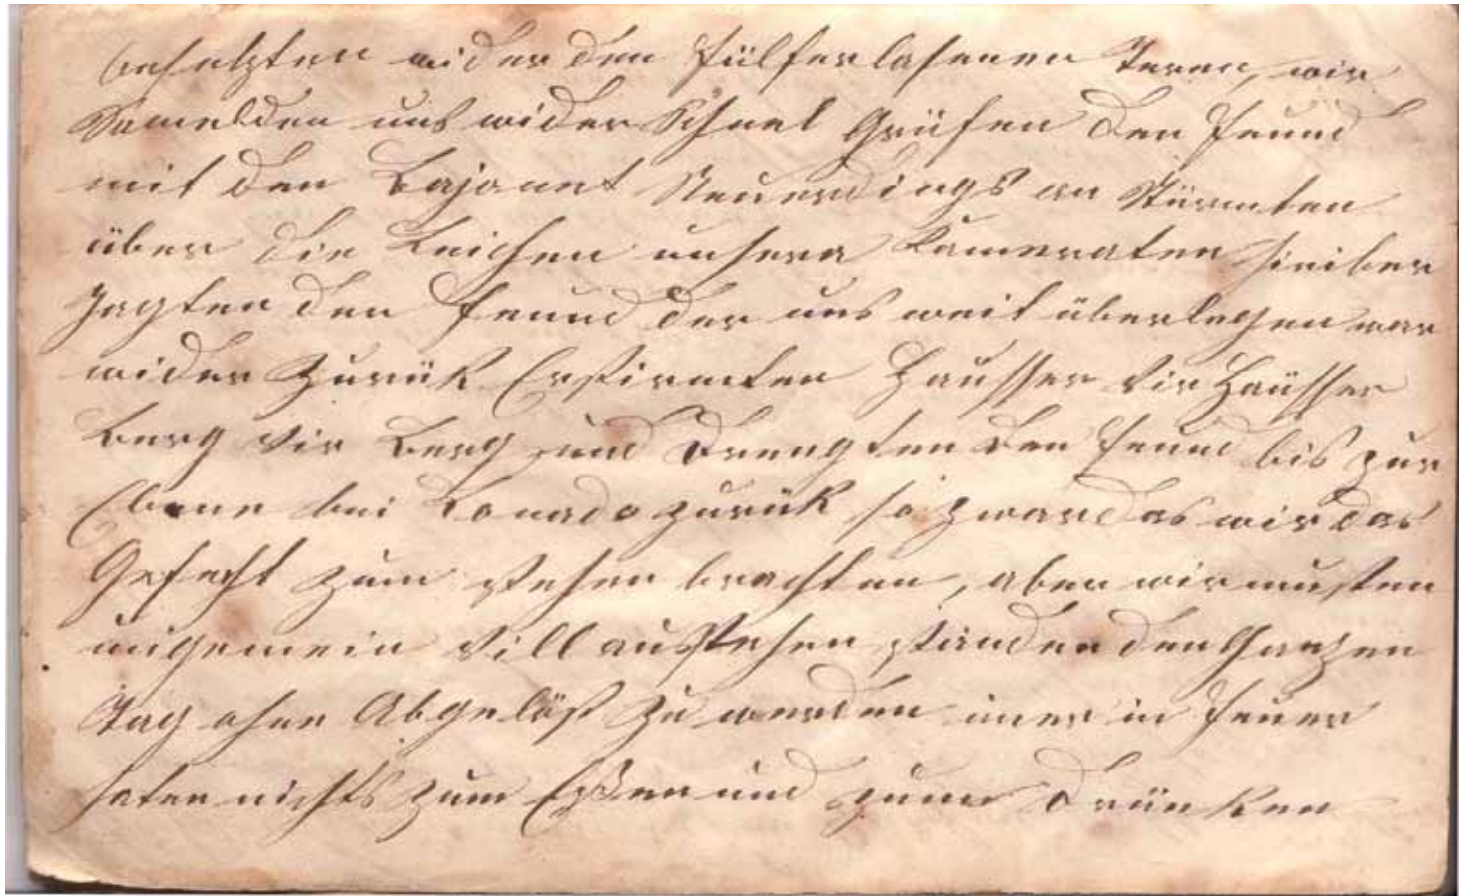 besetzten wider den fülferlasenen Teren, wir
Samelden uns wider Schnel Grüfen den Feund
mit den Bajonet Neuerdings an Stürmten
über die Leichen unsera Kameraten hiniber
Jagten den Feund der uns weit überlegen war
wider Zurük Erstirmten Haüsser vir Haüsser
Berg vir Berg und Drengten den Feund bis zur
Ebene bei Lonado zurük so zwar das wir das
Gefecht zum stehen brachten, aber wir musten
ungemein vill ausstehen standen den Ganzen
Tag ohne Abgelöst zu werden imer in Feuer
haten nichts zum Essen und zum Drünken